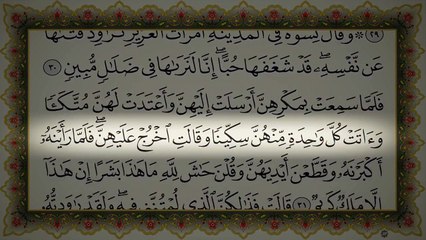 ﴿٢٩﴾ وَقَالَ نِسْوَةٌ فِى ٱلْمَدِينَةِ ٱمْرَأَتُ ٱلْعَزِيزِ تُرَٰوِدُ فَتَىٰهَا
عَن نَّفْسِهِۦ ۖ قَدْ شَغَفَهَا حُبًّا ۖ إِنَّا لَنَرَىٰهَا فِى ضَلَٰلٍ مُّبِينٍ ﴿٣٠﴾
فَلَمَّا سَمِعَتْ بِمَكْرِهِنَّ أَرْسَلَتْ إِلَيْهِنَّ وَأَعْتَدَتْ لَهُنَّ مُتَّكَـًٔا
وَءَاتَتْ كُلَّ وَٰحِدَةٍ مِّنْهُنَّ سِكِّينًا وَقَالَتِ ٱخْرُجْ عَلَيْهِنَّ ۖ فَلَمَّا رَأَيْنَهُۥٓ
أَكْبَرْنَهُۥ وَقَطَّعْنَ أَيْدِيَهُنَّ وَقُلْنَ حَٰشَ لِلَّهِ مَا هَٰذَا بَشَرًا إِنْ هَٰذَآ
إِلَّا مَلَكٌ كَرِيمٌ ﴿٣١﴾ قَالَتْ فَذَٰلِكُنَّ ٱلَّذِى لُمْتُنَّنِى فِيهِ ۖ وَلَقَدْ رَٰوَدتُّهُۥ